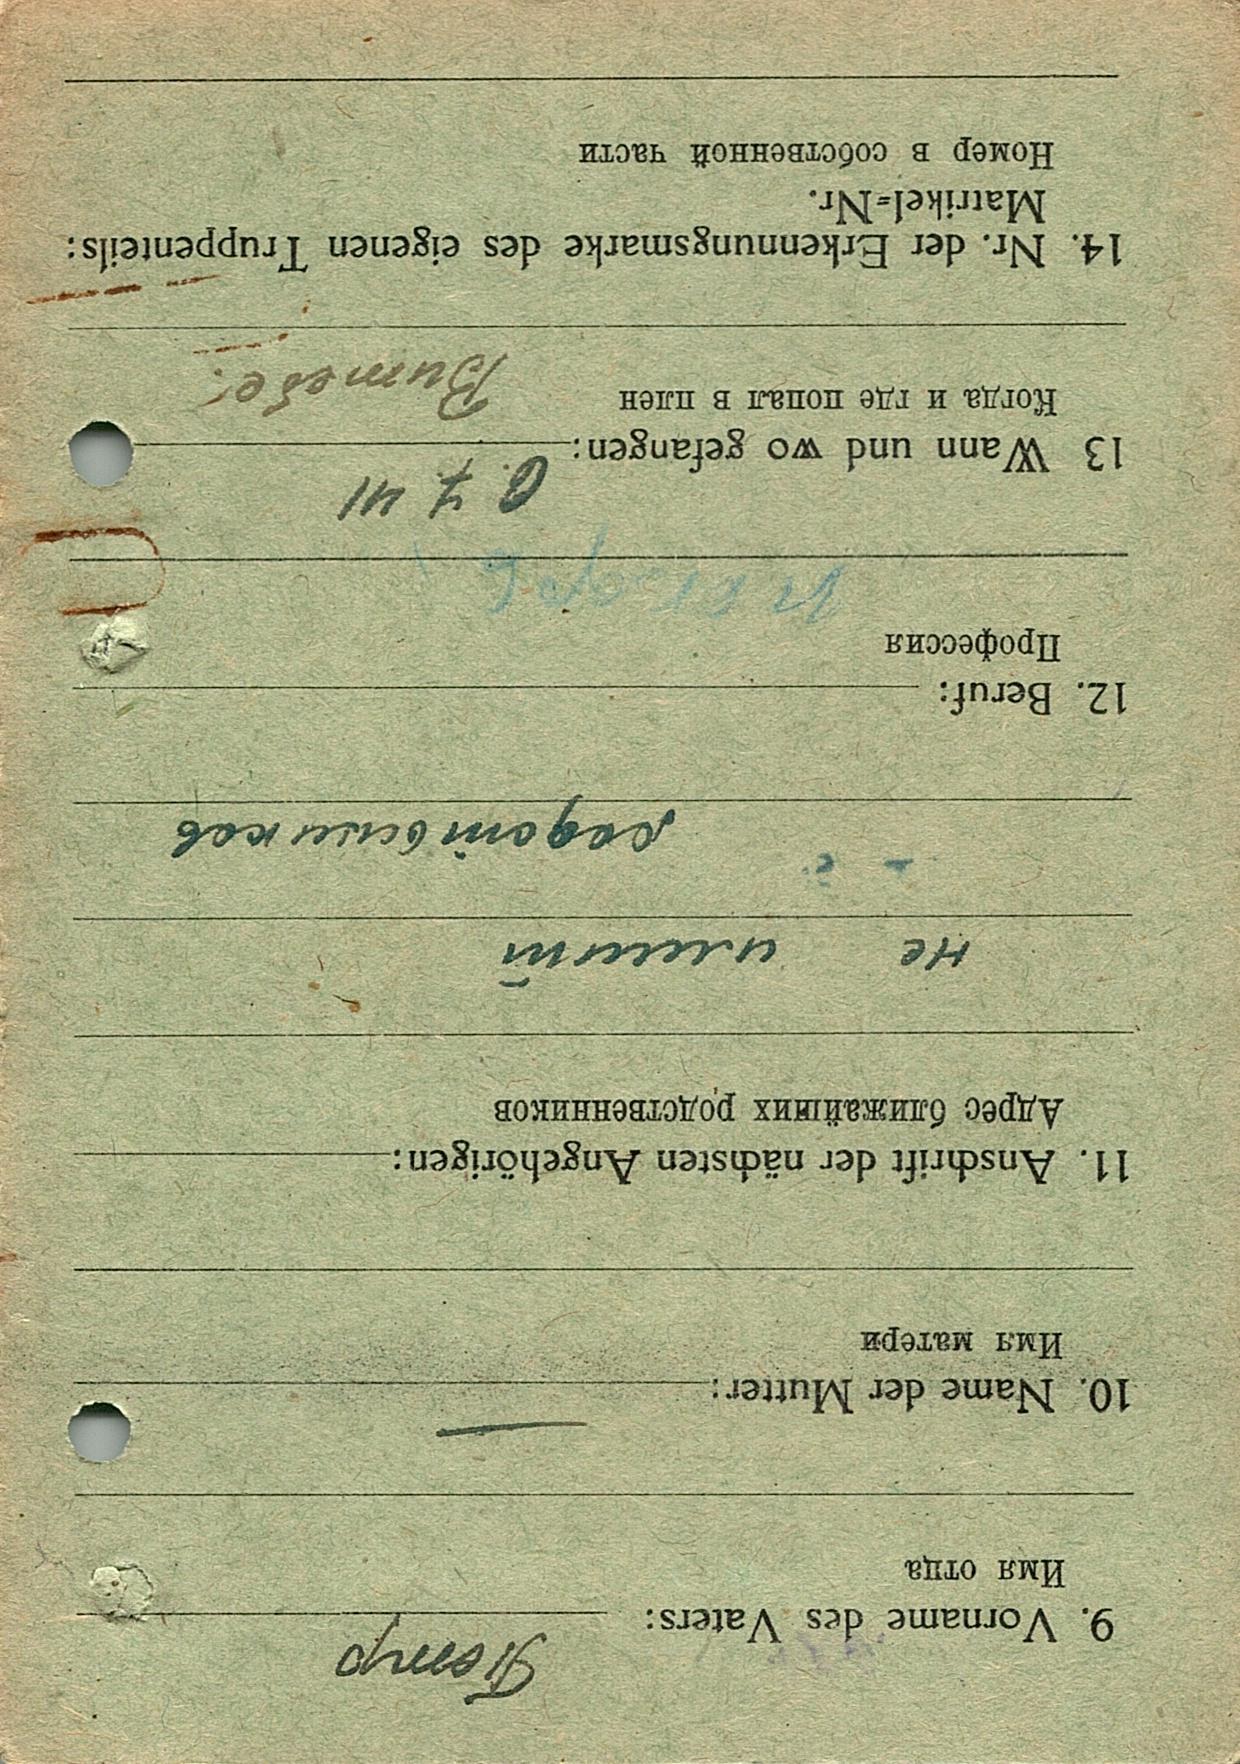 Петр
9. Vorname des Vaters:
Имя отца
10. Name der Mutter: —
Имя матери
11. Anschrift der nächsten Angehörigen:
Адрес ближайших родственников
не имеит
родствеников
12. Beruf:
Профессия
6. 7. 41
13 Wann und wo gefangen:
Когда и где попал в плен
14. Nr. der Erkennungsmarke des eigenen Truppenteils:
Matrikel=Nr.
Номер в собственной части